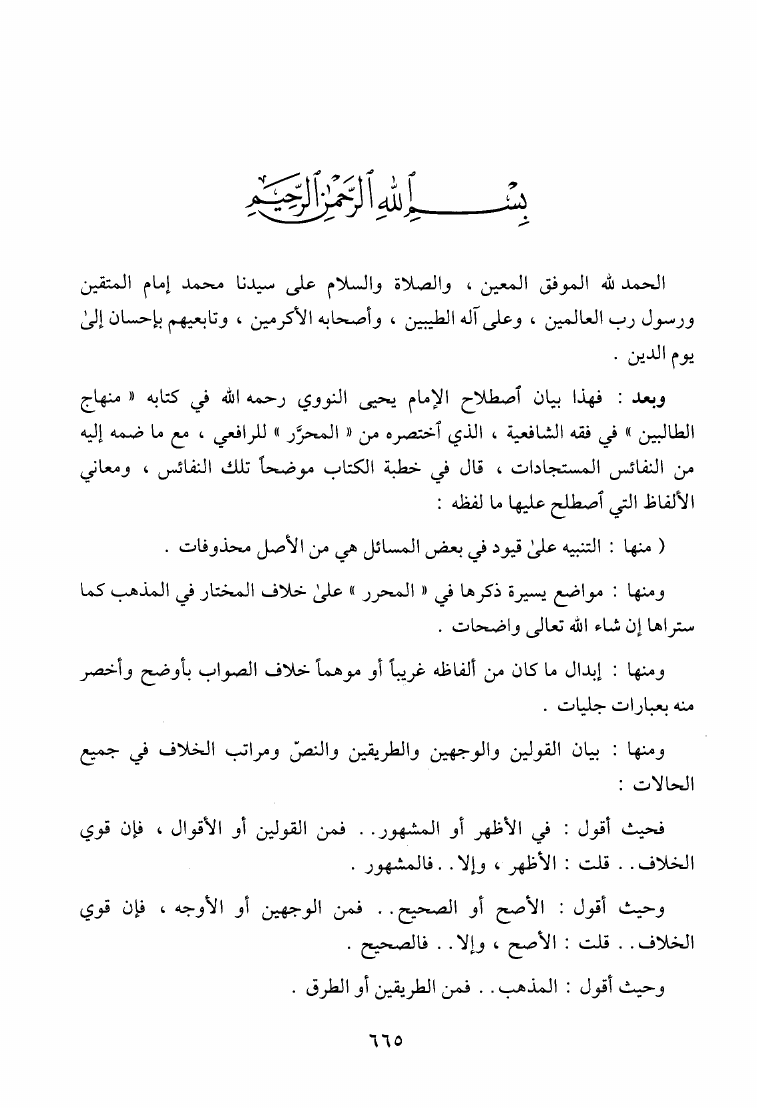 بِسْمِ اللهِ الرَّحْمٰنِ الرَّحِيْمِ
الحمد لله الموفق المعين ، والصلاة والسلام على سيدنا محمد إمام المتقين
ورسول رب العالمين ، وعلى آله الطيبين ، وأصحابه الأكرمين ، وتابعيهم بإحسان إلىٰ
يوم الدين .
وبعد : فهذا بيان ٱصطلاح الإمام يحيى النووي رحمه الله في كتابه « منهاج
الطالبين » في فقه الشافعية ، الذي ٱختصره من « المحرَّر » للرافعي ، مع ما ضمه إليه
من النفائس المستجادات ، قال في خطبة الكتاب موضحاً تلك النفائس ، ومعاني
الألفاظ التي ٱصطلح عليها ما لفظه :
( منها : التنبيه علىٰ قيود في بعض المسائل هي من الأصل محذوفات .
ومنها : مواضع يسيرة ذكرها في « المحرر » علىٰ خلاف المختار في المذهب كما
ستراها إن شاء الله تعالى واضحات .
ومنها : إبدال ما كان من ألفاظه غريباً أو موهماً خلاف الصواب بأوضح وأخصر
منه بعبارات جليات .
ومنها : بيان القولين والوجهين والطريقين والنصّ ومراتب الخلاف في جميع
الحالات :
فحيث أقول : في الأظهر أو المشهور . . فمن القولين أو الأقوال ، فإن قوي
الخلاف . . قلت : الأظهر ، وإلا . . فالمشهور .
وحيث أقول : الأصح أو الصحيح . . فمن الوجهين أو الأوجه ، فإن قوي
الخلاف . . قلت : الأصح ، وإلا . . فالصحيح .
وحيث أقول : المذهب . . فمن الطريقين أو الطرق .
٦٦٥